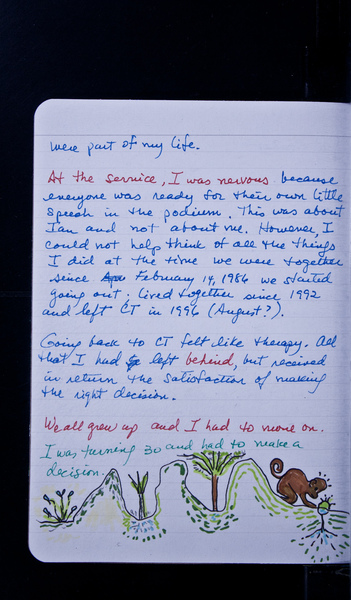 were part of my life.
At the service, I was nervous because
everyone was ready for their own little
speech in the podium. This was about
Ian and not about me. However, I
could not help think of all the things
I did at the time we were together
since February 14, 1986 we started
going out; lived together since 1992
and left CT in 1996 (August?).
Going back to CT felt like therapy. All
that I had left behind, but received
in return the satisfaction of making
the right decision.
We all grew up and I had to move on.
I was turning 30 and had to make a
decision.